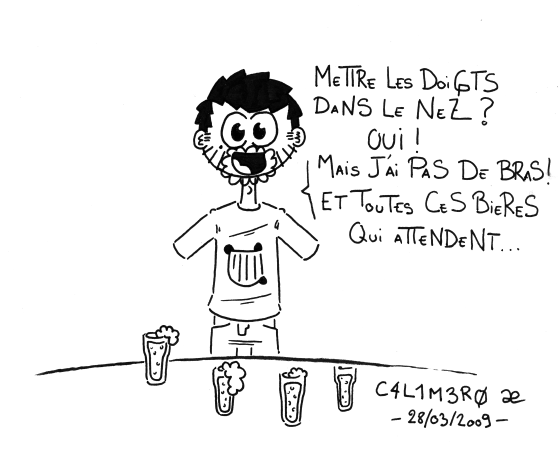 METTRE LES DOiGTS
DANS LE NEZ ?
OUi !
MAiS J'Ai PAS DE BRAS !
ET TOUTES CES BiERES
QUi ATTENDENT...
C4L1M3RØ æ
- 28/03/2009 -